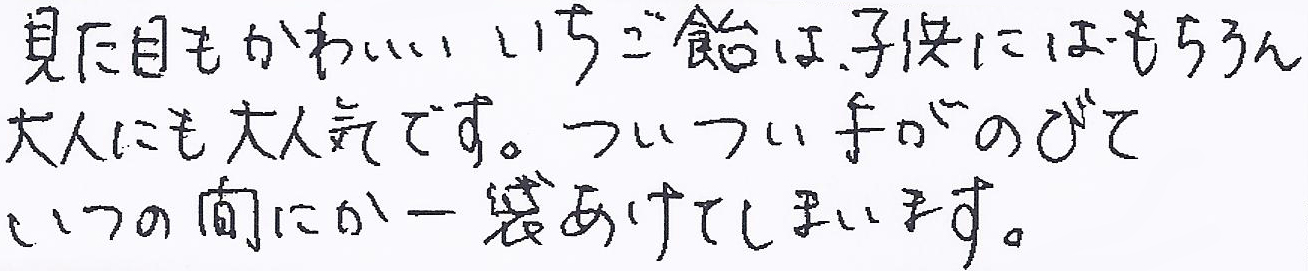 見た目もかわいいいちご飴は、子供にはもちろん
大人にも大人気です。ついつい手がのびて
いつの間にか一袋あけてしまいます。